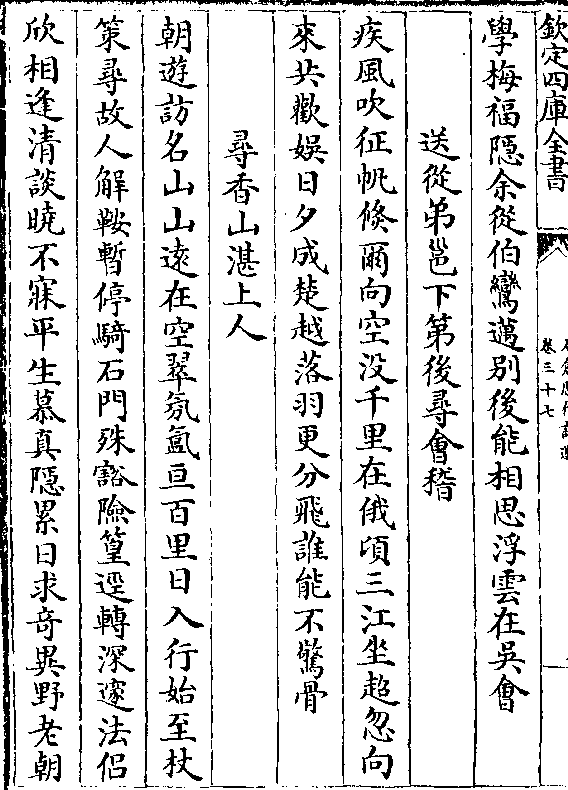 欽定四庫全書
卷三十七
學梅福隠余從伯鸞邁别後能相思浮雲在吳會
送從弟邕下第後尋會稽
疾風吹征帆倐爾向空没千里在俄頃三江坐超忽向
來共歡娱日夕成楚越落羽更分飛誰能不驚骨
尋香山湛上人
朝遊訪名山山逺在空翠氛氲亘百里日入行始至杖
策尋故人解鞍暫停騎石門殊豁險篁逕轉深邃法侣
欣相逢清談曉不寐平生慕真隠累日求竒異野老朝